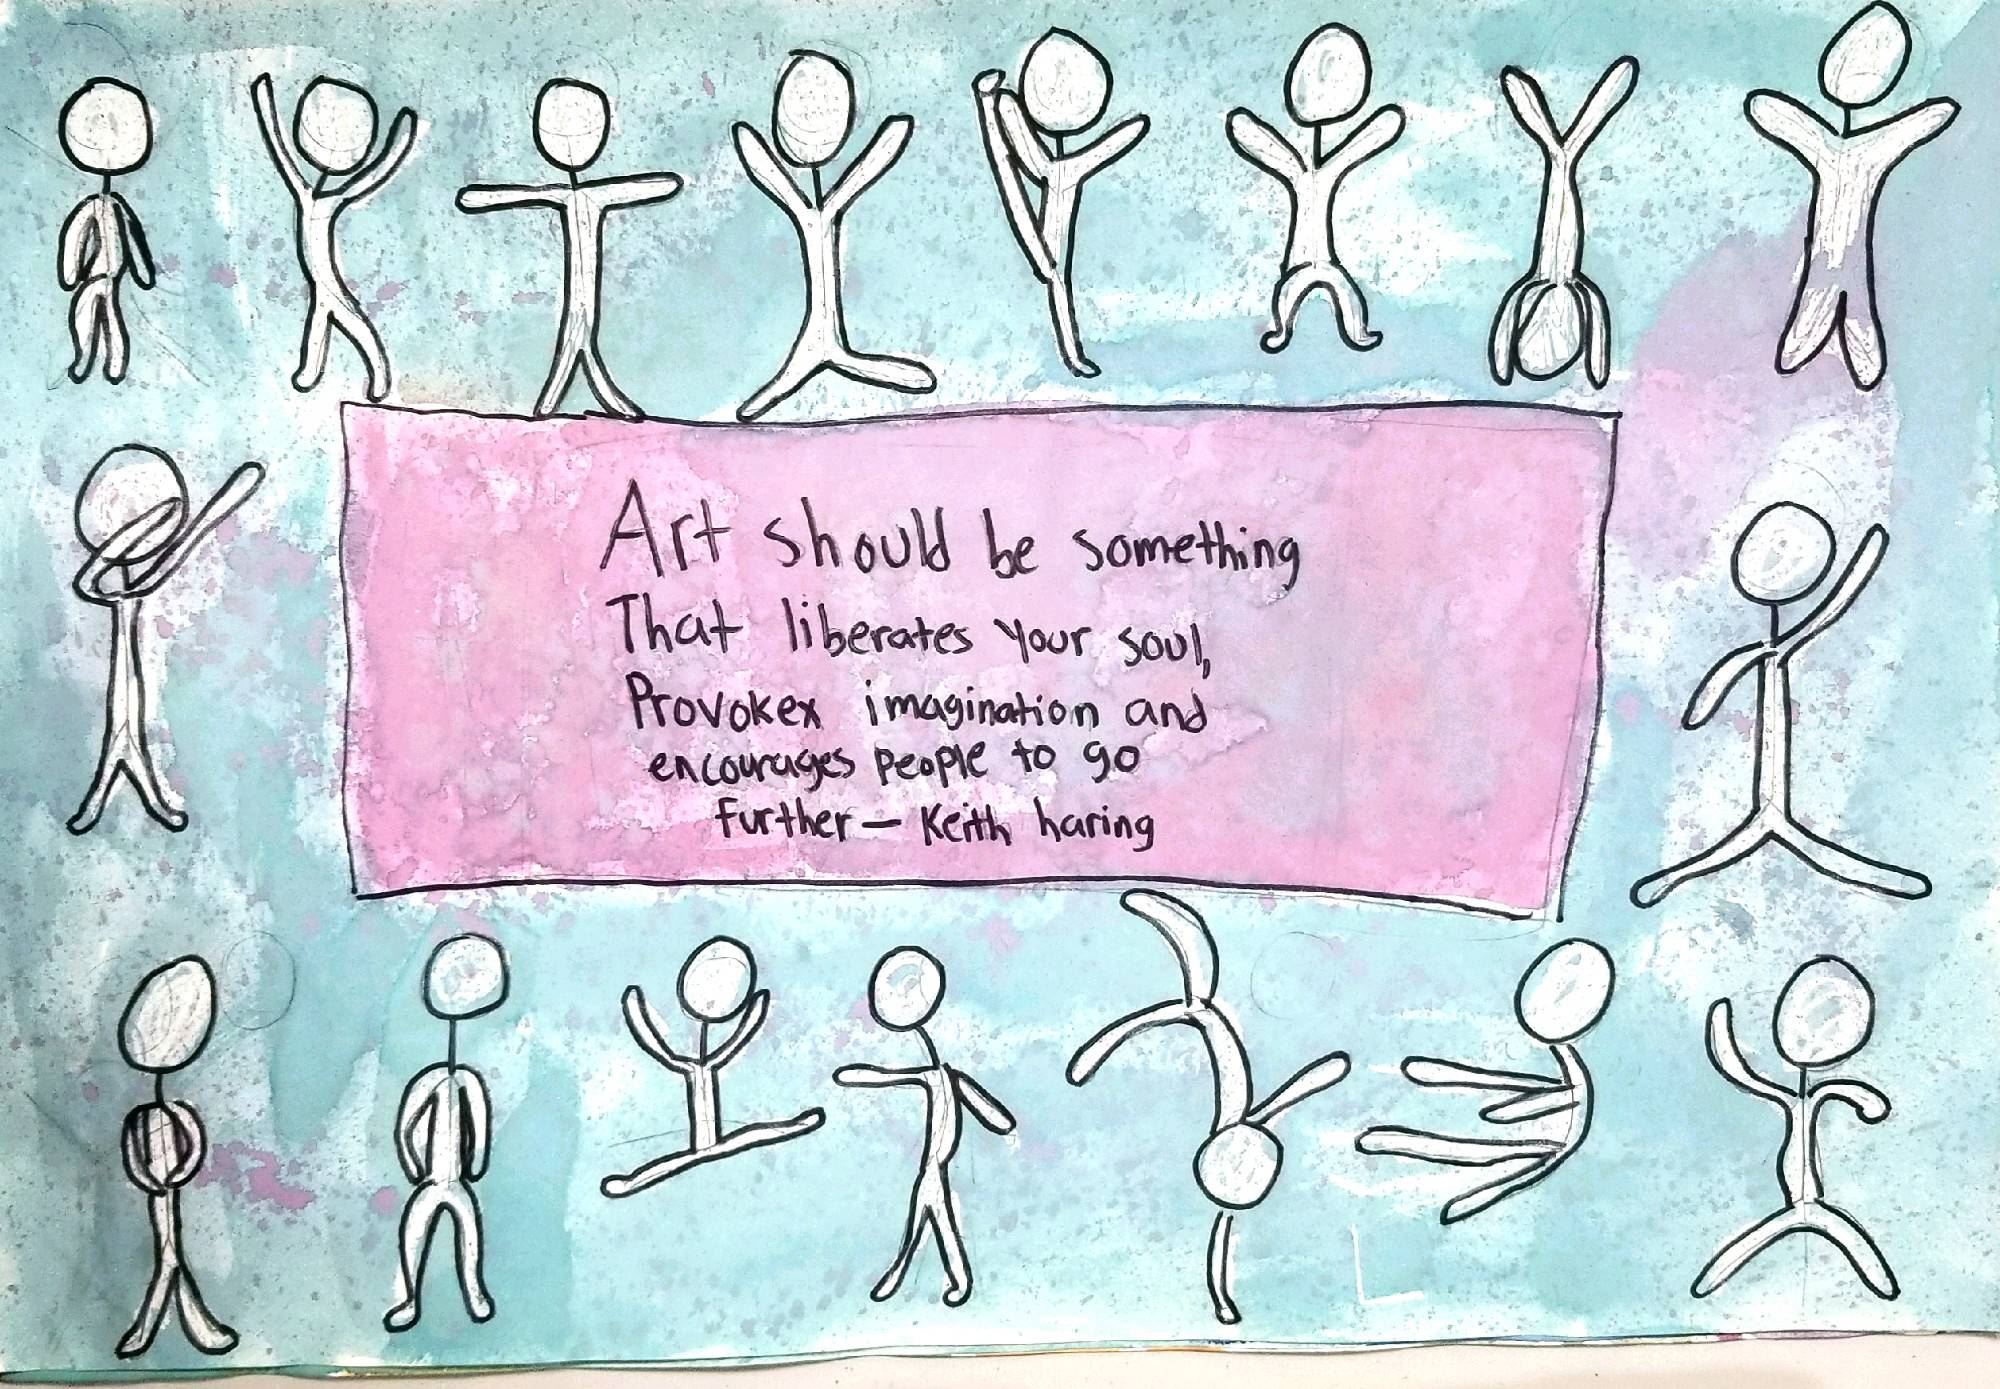 Art should be something
That liberates your soul,
Provokex imagination and
encourages people to go
further — Keith haring